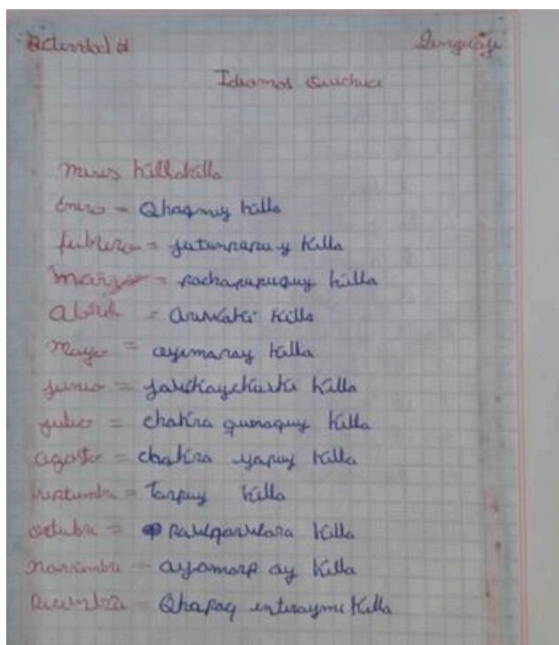 actividad 61 Lenguaje
Idiomas Quichua
meses killakilla
Enero = Qhaqmiy killa
febrero = jatunpupuy Killa
marzo = pachapupuquy killa
abril = Killa
mayo = aymaray Killa
junio = Killa
julio = chakra qunaquy Killa
agosto = chakra yapuy Killa
septiembre = Tarpuy Killa
octubre = Killa
noviembre = ayamarq ay Killa
Diciembre = Qhapaq intiraymi Killa